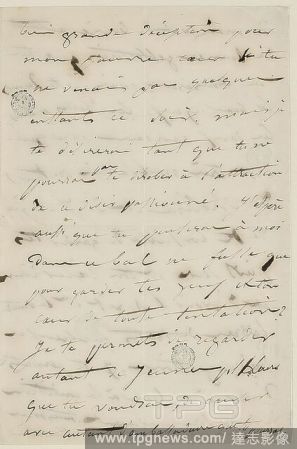 grande déception pour
mon pauvre cœur si tu
ne venais pas quelques
instants ce soir, mais je
te désirerai tant que tu ne
pourras pas te dérober à l'attraction
de ce désir passionné. J'espère
aussi que tu penseras à moi
dans ce bal ne fusse que
pour garder tes yeux et ton
cœur de toute tentation?
Je te permets de regarder
autant de jeunes
que tu voudras
avec autant
TPG
www.tpgnews.com / 達志影像